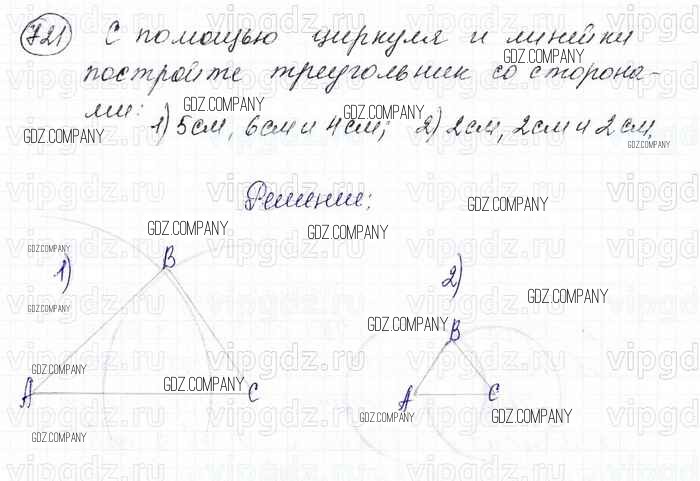 721 С помощью циркуля и линейки
постройте треугольник со сторона-
ми: 1) 5см, 6см и 4см; 2) 2см, 2см и 2см.
Решение:
1) B
A C
2) B
A C
GDZ.COMPANY
GDZ.COMPANY
GDZ.COMPANY
GDZ.COMPANY
GDZ.COMPANY
GDZ.COMPANY
GDZ.COMPANY
GDZ.COMPANY
GDZ.COMPANY
GDZ.COMPANY
GDZ.COMPANY
GDZ.COMPANY
GDZ.COMPANY
GDZ.COMPANY
GDZ.COMPANY
GDZ.COMPANY
GDZ.COMPANY
vipgdz.ru